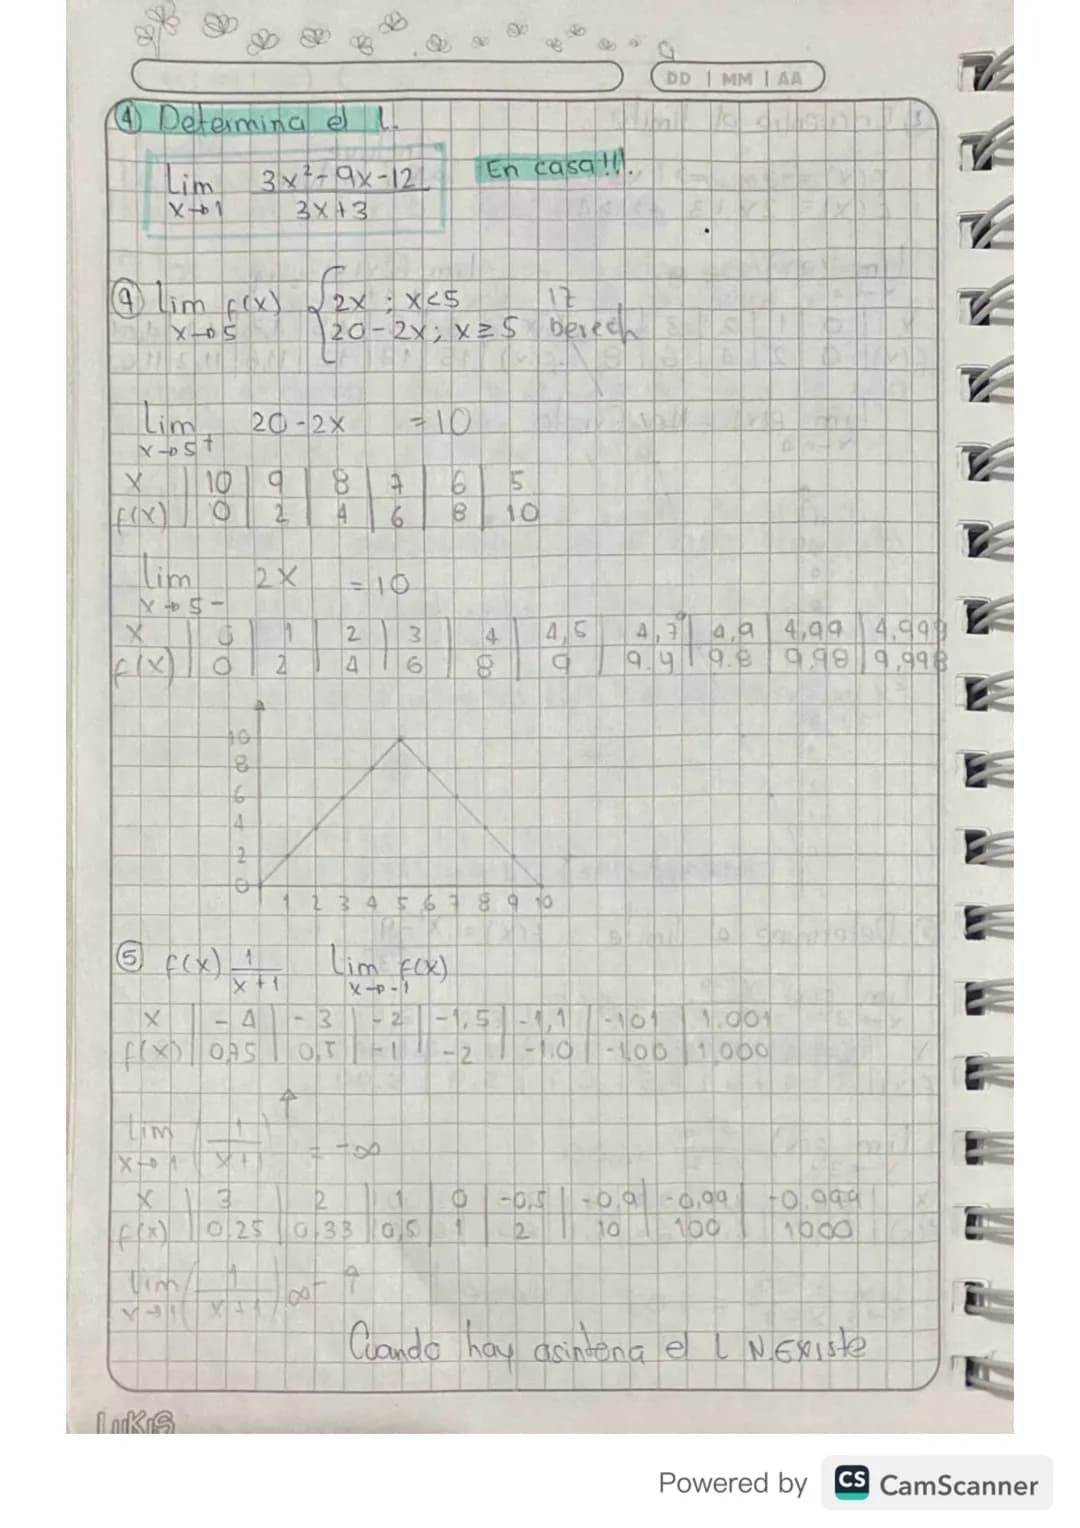 DD | MM | AA
④ Determina el L.
Lim 3x²-9x-12
x→1 3x+3
En casa!!!.
④ lim f(x) { 2x ; x<5
x→5 20-2x; x≥5
Lim 20-2x =10
x→5+
x | 10 | 9 | 8 | 7 | 6 | 5
f(x) | 0 | 2 | 4 | 6 | 8 | 10
lim 2x =10
x→5-
x | 0 | 1 | 2 | 3 | 4 | 4,5 | 4,7 | 4,9 | 4,99 | 4,999
f(x) | 0 | 2 | 4 | 6 | 8 | 9 | 9.4 | 9.8 | 9.98 | 9,998
10
8
6
4
2
0
1 2 3 4 5 6 7 8 9 10
⑤ f(x) 1/x+1 Lim f(x)
x→-1
x | -4 | -3 | -2 | -1,5 | -1,1 | -101 | 1.001
f(x) | 0,75 | 0,5 | -1 | -2 | -1.0 | -100 | 1,000
Lim (1/x+1) = -∞
x→1
x | 3 | 2 | 1 | 0 | -0,5 | -0,9 | -0,99 | -0,999
f(x) | 0.25 | 0.33 | 0,5 | 1 | 2 | 10 | 100 | 1000
Lim (1/x+1) ∞-
x→1
Cuando hay asintona el L N.Existe
LUKIS
Powered by CS CamScanner